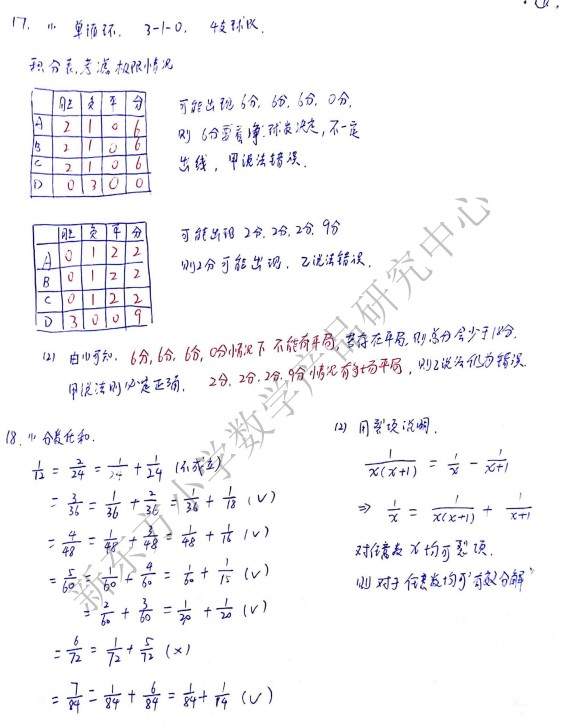 17. (1) 单循环. 3-1-0. 4支球队
积分表,考虑极限情况
胜 负 平 分
A 2 1 0 6
B 2 1 0 6
C 2 1 0 6
D 0 3 0 0
可能出现 6分, 6分, 6分, 0分,
则 6分需看净球数决定, 不一定
出线, 甲说法错误.
胜 负 平 分
A 0 1 2 2
B 0 1 2 2
C 0 1 2 2
D 3 0 0 9
可能出现 2分, 2分, 2分, 9分
则2分可能出现, 乙说法错误.
(2) 由(1)可知, 6分, 6分, 6分, 0分情况下不能有平局, 若存在平局, 则总分会少于18分,
甲说法则必定正确. 2分, 2分, 2分, 9分情况有多场平局, 则乙说法仍为错误.
18. (1) 分数任和.
1/12 = 2/24 = 1/24 + 1/24 (不成立)
= 3/36 = 1/36 + 2/36 = 1/36 + 1/18 (√)
= 4/48 = 1/48 + 3/48 = 1/48 + 1/16 (√)
= 5/60 = 1/60 + 4/60 = 1/60 + 1/15 (√)
= 2/60 + 3/60 = 1/30 + 1/20 (√)
= 6/72 = 1/72 + 5/72 (×)
= 7/84 = 1/84 + 6/84 = 1/84 + 1/14 (√)
(2) 用裂项说明.
1/x(x+1) = 1/x - 1/x+1
⇒ 1/x = 1/x(x+1) + 1/x+1
对任意数 x 均可裂项.
则对于任意数均可"有效分解"
新东方小学数学产品研究中心